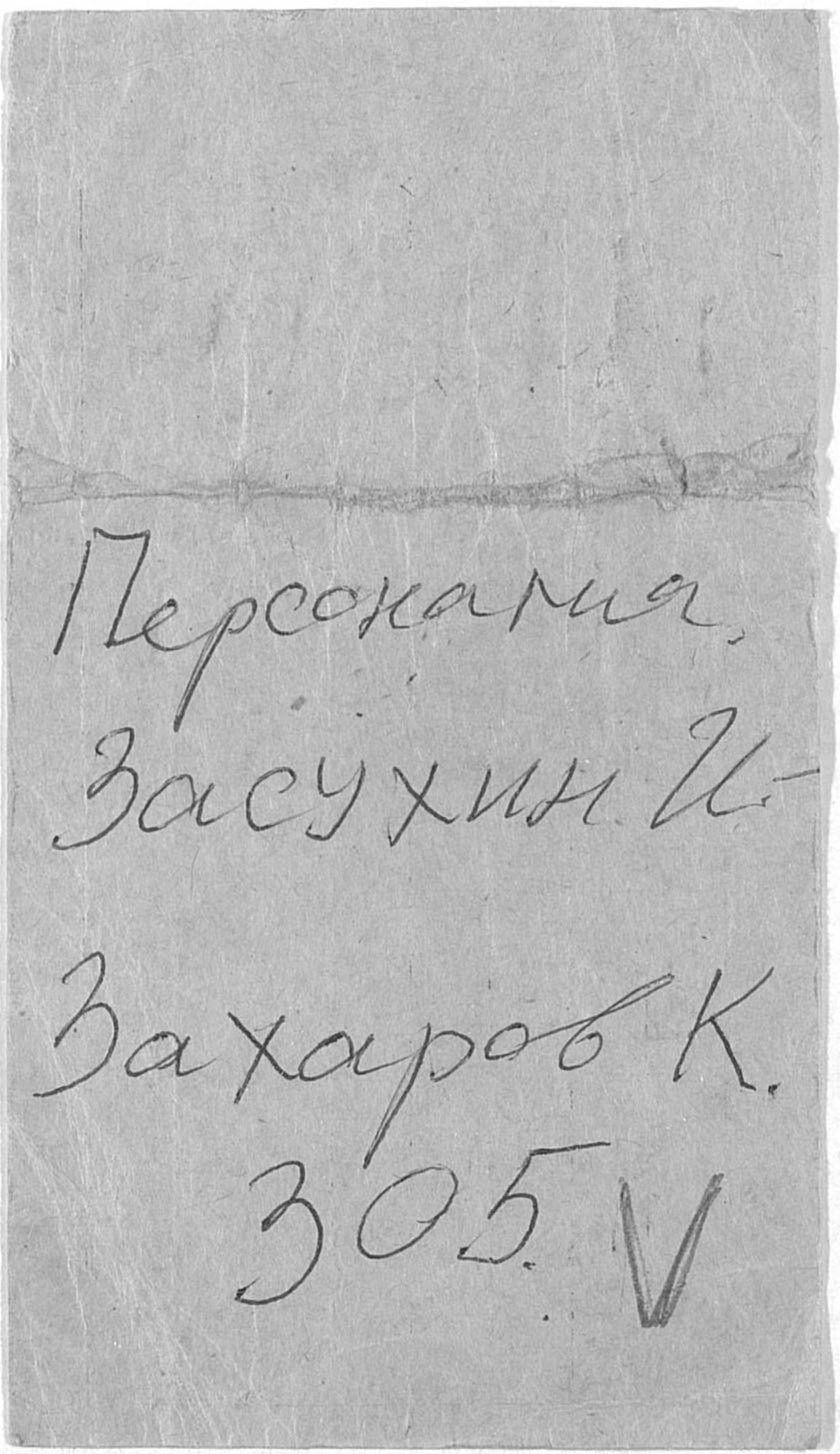 Персоналия.
Засухин И.-
Захаров К.
305. V